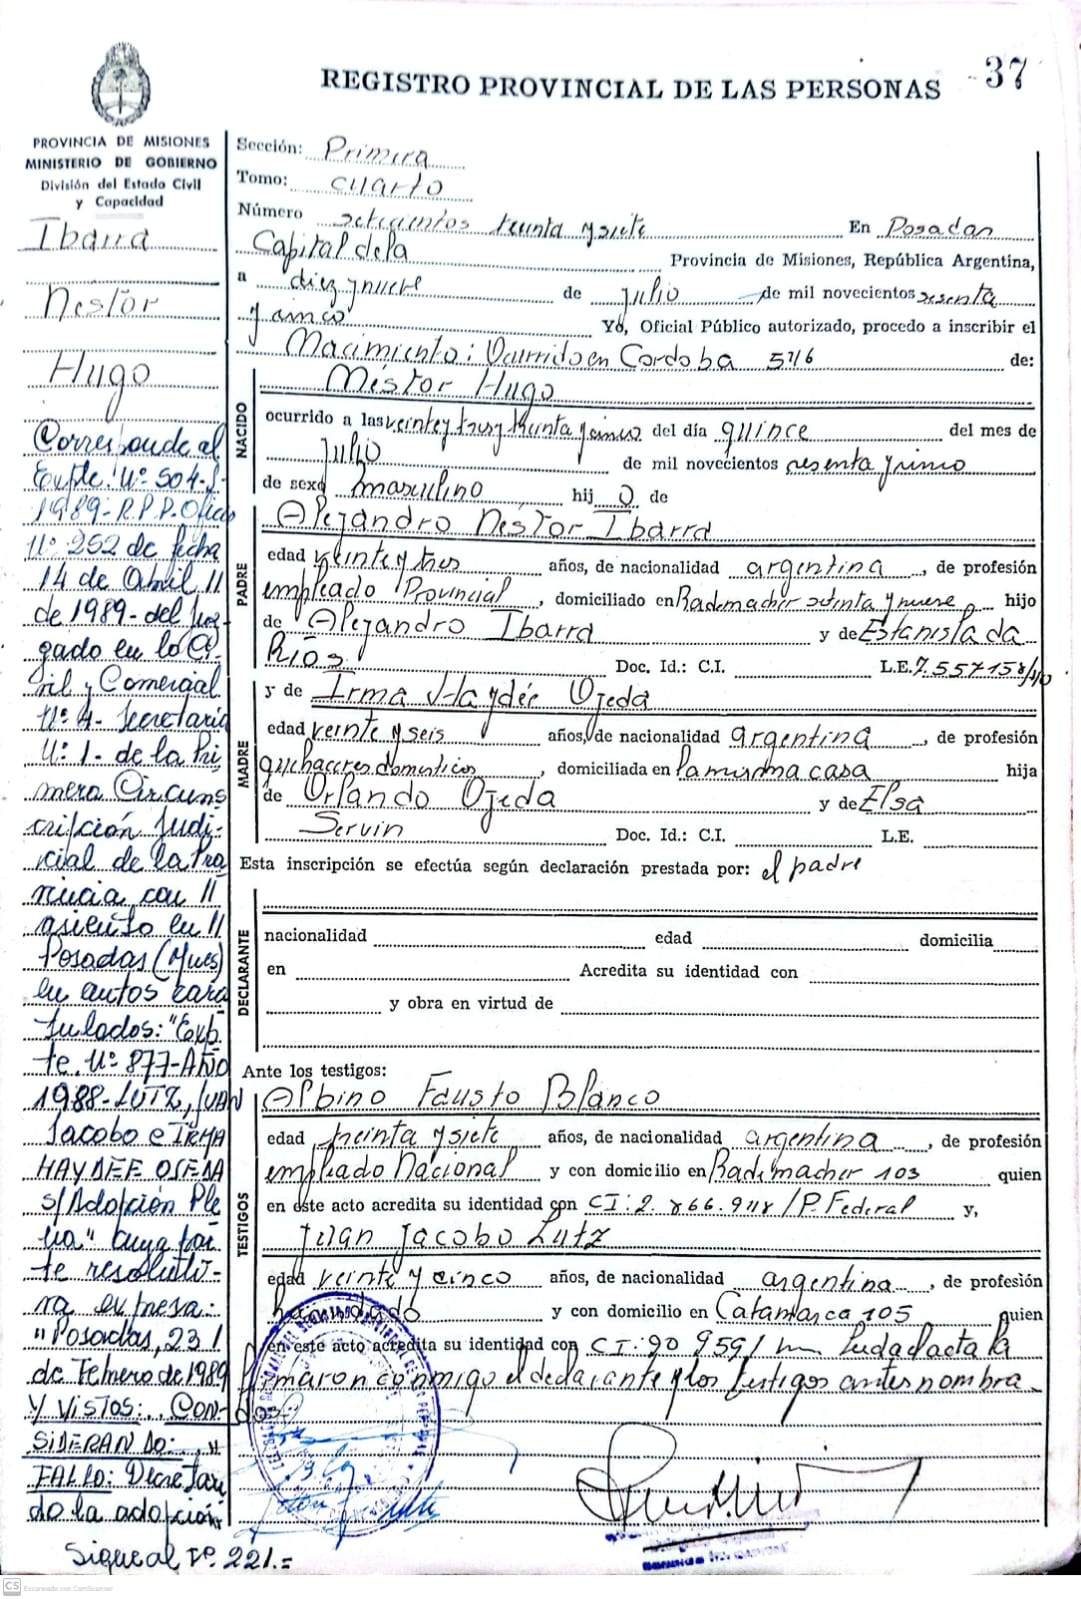 37
REGISTRO PROVINCIAL DE LAS PERSONAS
PROVINCIA DE MISIONES
MINISTERIO DE GOBIERNO
División del Estado Civil
y Capacidad
Ibarra
Nestor
Hugo
Corresponde al
Expte. Nº 504-S-
1989-R.P.P. Oficio
Nº 252 de fecha
14 de Abril //
de 1989- del Juz-
gado en lo Ci-
vil y Comercial
Nº 4- Secretaria
Nº 1- de la Pri
mera Circuns
cripción Judi-
cial de la Pro
vincia con //
asiento en //
Posadas (Mnes)
en autos cara
tulados: "Exp-
te. Nº 877-AÑO
1988-LUTZ, JUAN
Jacobo e IRMA
HAYDEE OJEDA
s/Adopción Ple
na" cuya par-
te resoluti-
va expresa:
"Posadas, 23 /
de Febrero de 1989
Y VISTOS:.. CON-
SIDERANDO:.,,
FALLO: Decretan
do la adopción
Sigue al Fº. 221.=
Sección: Primera
Tomo: cuarto
Número setecientos treinta y siete En Posadas
Capital de la Provincia de Misiones, República Argentina,
a diez y nueve de julio de mil novecientos sesenta
y cinco Yo, Oficial Público autorizado, procedo a inscribir el
Nacimiento: Ocurrido en Cordoba 576 de:
NACIDO
Néstor Hugo
ocurrido a las veinte y tres y treinta y cinco del día quince del mes de
julio de mil novecientos sesenta y cinco
de sexo masculino hij o de
PADRE
Alejandro Néstor Ibarra
edad veinte y tres años, de nacionalidad argentina, de profesión
empleado Provincial, domiciliado en Rademacher setenta y nueve hijo
de Alejandro Ibarra y de Estanislada
Ríos Doc. Id.: C.I. L.E. 7.557158
MADRE
y de Irma Haydée Ojeda
edad veinte y seis años, de nacionalidad argentina, de profesión
quehaceres domesticos, domiciliada en la misma casa hija
de Orlando Ojeda y de Elsa
Servin Doc. Id.: C.I. L.E.
Esta inscripción se efectúa según declaración prestada por: el padre
DECLARANTE
nacionalidad edad domicilia
en Acredita su identidad con
y obra en virtud de
Ante los testigos:
TESTIGOS
Albino Fausto Blanco
edad treinta y siete años, de nacionalidad argentina, de profesión
empleado Nacional y con domicilio en Rademacher 103 quien
en este acto acredita su identidad con CI: 2. 866.918/P. Federal y,
Juan Jacobo Lutz
edad veinte y cinco años, de nacionalidad argentina, de profesión
hacendado y con domicilio en Catamarca 105 quien
en este acto acredita su identidad con CI: 90 959/ Leida el acta la
firmaron conmigo el declarante y los testigos antes nombra
dos
CS Escaneado con CamScanner